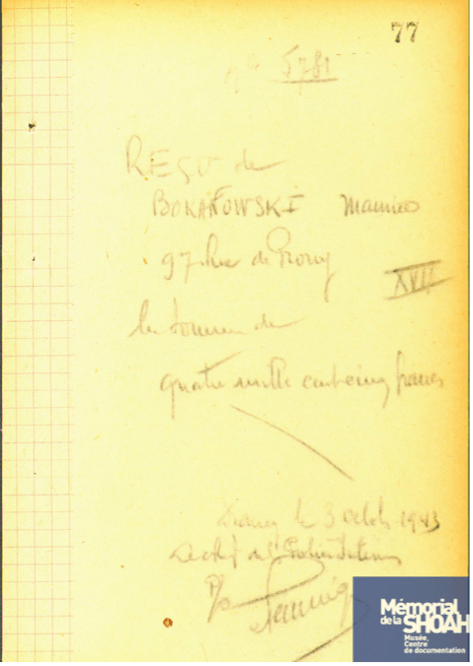 77
n° 5781
REÇU de
BOKANOWSKI Maurice
97 Rue de Prony
XVII
la somme de
quatre mille cent cinq francs
Drancy le 3 octob 1943
Le chef de
P/o
Mémorial
de la SHOAH
Musée,
Centre
de documentation